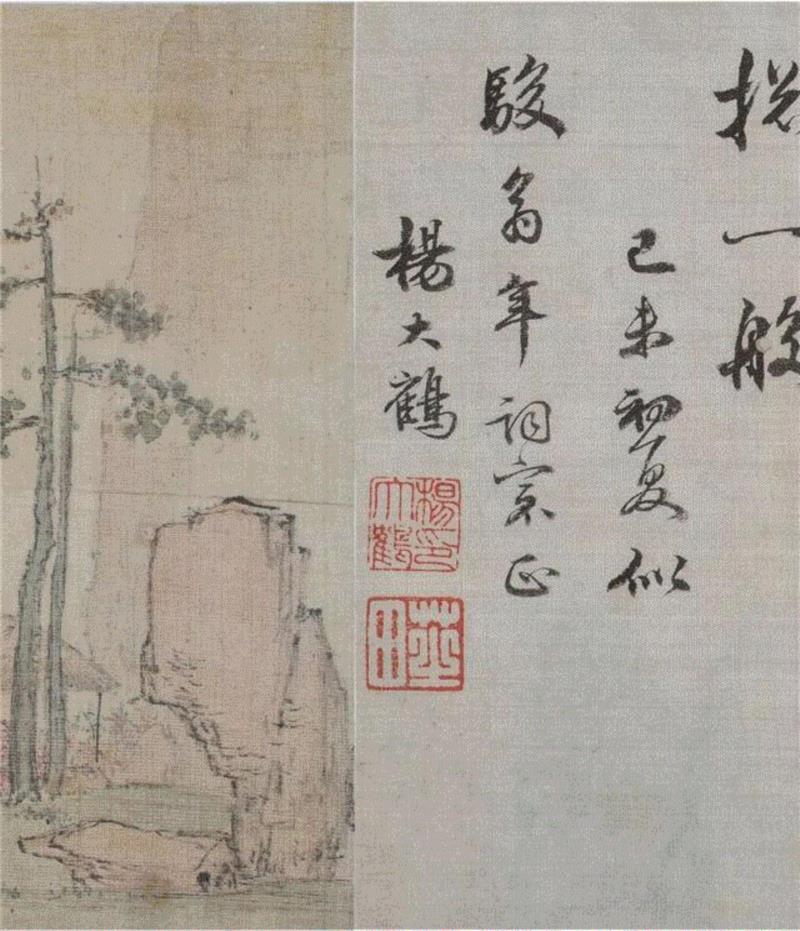 一般
己未初夏似
駿翁年詞宗正
楊大鶴
楊印大鶴
芝田